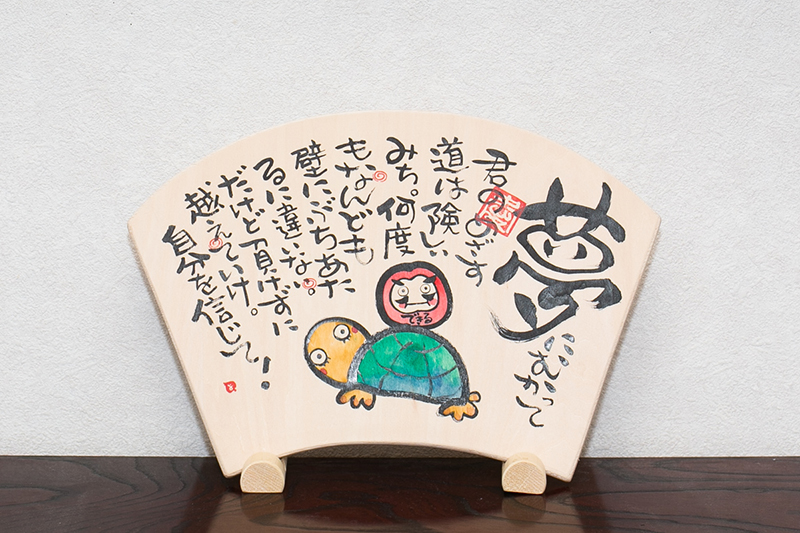 夢にむかって
君のめざす
道は険しい
みち。何度
もなんども
壁にぶちあた
るに違いない。
だけど負けずに
越えていけ。
自分を信じて!
できる